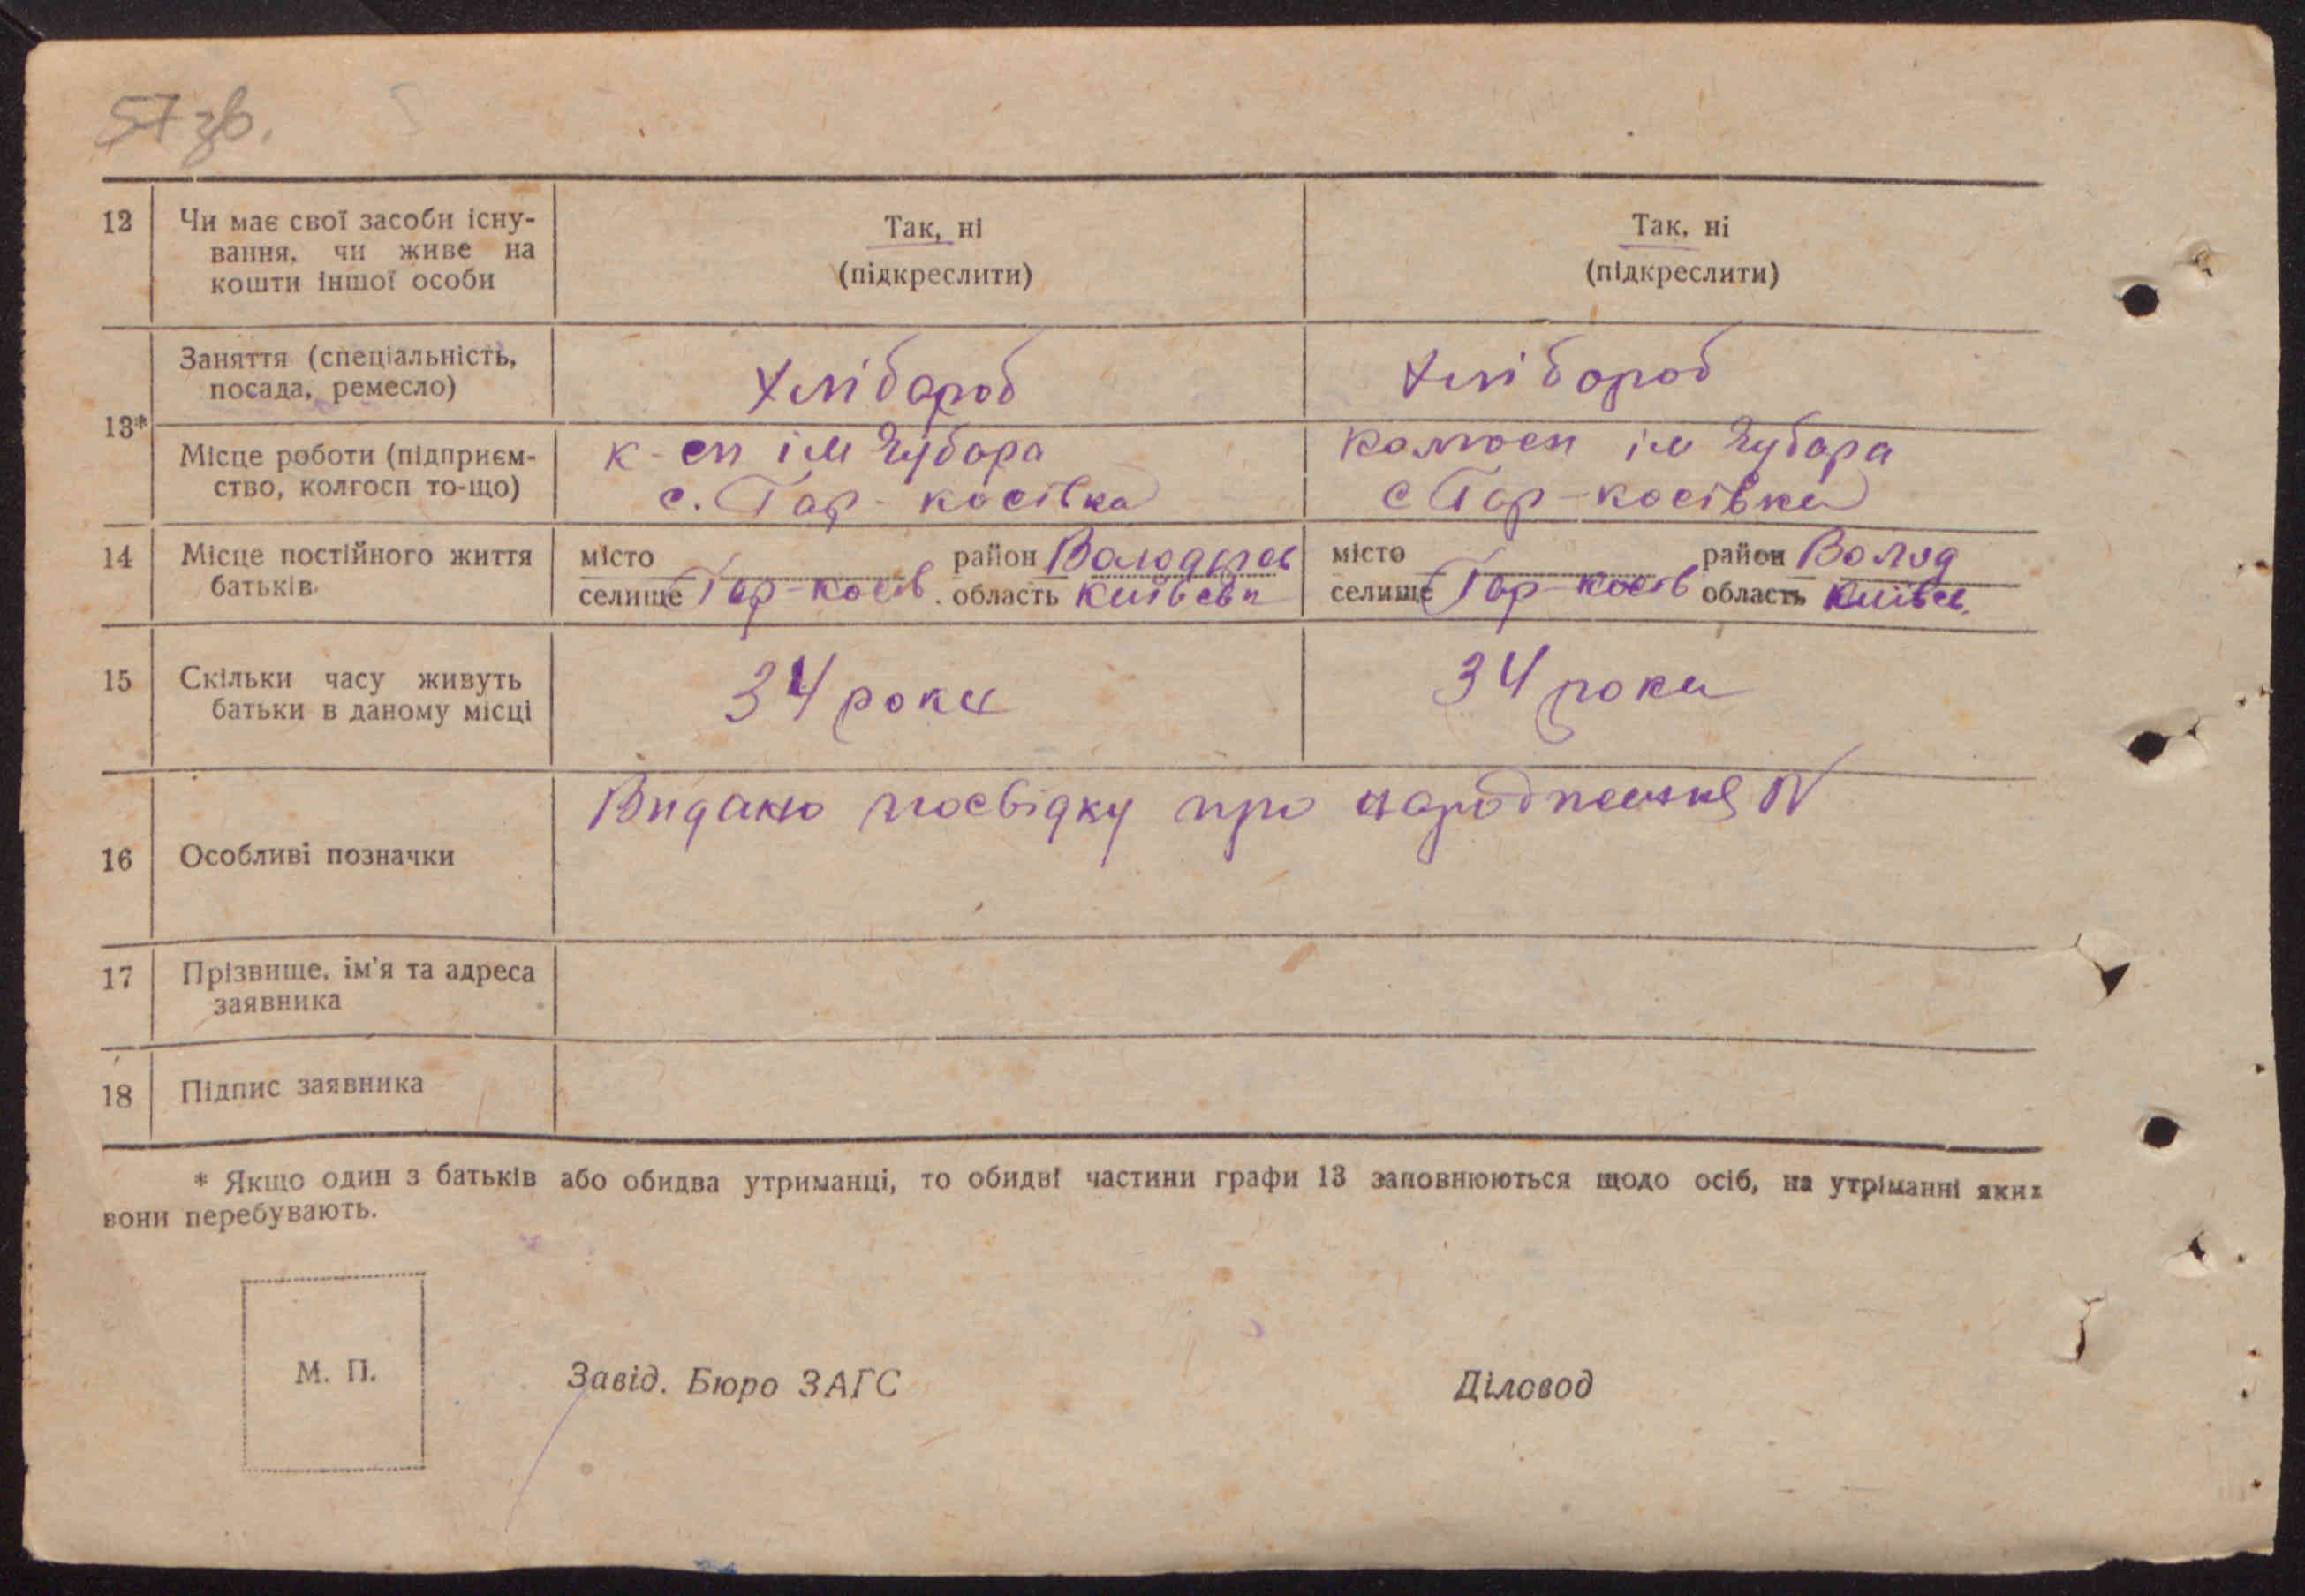 57 зв.
12 Чи має свої засоби існу-
вання, чи живе на
кошти іншої особи
Так, ні
(підкреслити)
Так, ні
(підкреслити)
13*
Заняття (спеціальність,
посада, ремесло)
Хлібороб
Хлібороб
Місце роботи (підприєм-
ство, колгосп то-що)
к-сп ім Чубара
с. Гар-косівка
колгосп ім Чубара
с Гор-косівка
14 Місце постійного життя
батьків
місто
селище Гор-косів.
район Володарсь
область Київськ
місто
селище Гор-косів
район Волод
область Київс.
15 Скільки часу живуть
батьки в даному місці
34 роки
34 роки
16 Особливі позначки
Видано посвідку про народження N
17 Прізвище, ім'я та адреса
заявника
18 Підпис заявника
* Якщо один з батьків або обидва утриманці, то обидві частини графи 13 заповнюються щодо осіб, на утріманні яких
вони перебувають.
М. П.
Завід. Бюро ЗАГС
Діловод